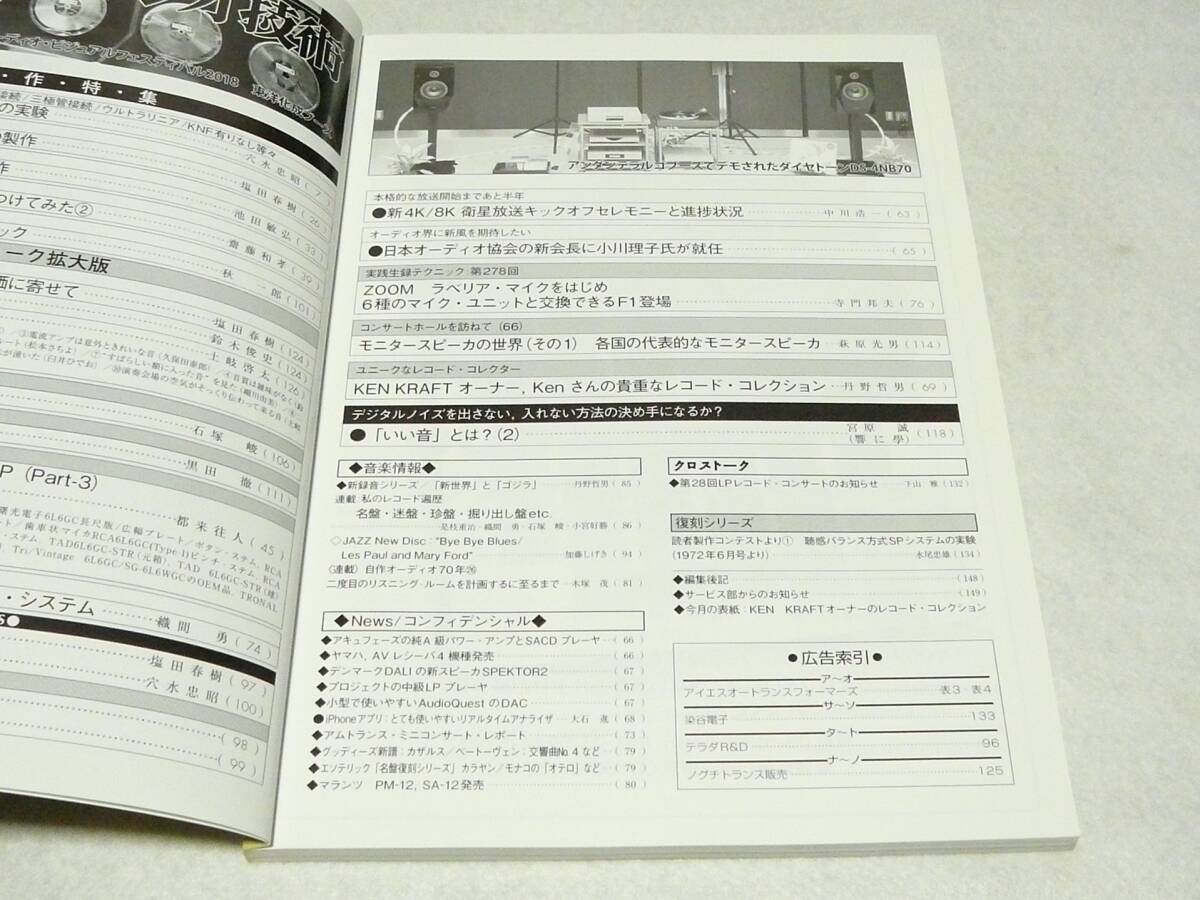 オ技術
ーディオ・ビジュアルフェスティバル2018 東洋化成ブース
・作・特・集
接続/三極管接続/ウルトラリニア/KNF有りなし等々
の実験
穴水忠昭(7)
の製作
塩田春樹(26)
作
池田敏弘(33)
つけてみた②
齋藤和孝(39)
ック
秋一郎(101)
ーク拡大版
価に寄せて
塩田春樹(124)
鈴木俊史(124)
土岐啓太(126)
石塚峻(106)
黒田徹(111)
P (Part-3)
都来往人(45)
・システム
織間勇(74)
塩田春樹(97)
穴水忠昭(100)
(98)
(99)
アンダンテラルゴブースでデモされたダイヤトーンDS-4NB70
本格的な放送開始まであと半年
●新4K/8K 衛星放送キックオフセレモニーと進捗状況 中川浩一(63)
オーディオ界に新風を期待したい
●日本オーディオ協会の新会長に小川理子氏が就任 (65)
実践生録テクニック 第278回
ZOOM ラベリア・マイクをはじめ
6種のマイク・ユニットと交換できるF1登場 寺門邦夫(76)
コンサートホールを訪ねて(66)
モニタースピーカの世界(その1) 各国の代表的なモニタースピーカ 萩原光男(114)
ユニークなレコード・コレクター
KEN KRAFT オーナー, Ken さんの貴重なレコード・コレクション 丹野哲男(69)
デジタルノイズを出さない, 入れない方法の決め手になるか?
●「いい音」とは?(2) 宮原誠(響に學)(118)
◆音楽情報◆
◆新録音シリーズ/「新世界」と「ゴジラ」 丹野哲男(85)
連載:私のレコード遍歴
名盤・迷盤・珍盤・掘り出し盤etc.
是枝重治・織間 勇・石塚 峻・小宮好勝(86)
◇JAZZ New Disc:"Bye Bye Blues/
Les Paul and Mary Ford" 加藤しげき(94)
〈連載〉自作オーディオ70年㉖
二度目のリスニング ルームを計画するに至るまで 木塚 茂(81)
◆News/コンフィデンシャル◆
◆アキュフェーズの純A級パワー・アンプとSACD プレーヤ (66)
◆ヤマハ, AV レシーバ4機種発売 (66)
◆デンマークDALI の新スピーカSPEKTOR2 (67)
◆プロジェクトの中級LP プレーヤ (67)
◆小型で使いやすいAudioQuest のDAC (67)
●iPhoneアプリ:とても使いやすいリアルタイムアナライザ 大石 進(68)
◆アムトランス・ミニコンサート・レポート (73)
◆グッディーズ新譜:カザルス/ベートーヴェン:交響曲No.4 など (79)
◆エソテリック「名盤復刻シリーズ」カラヤン/モナコの「オテロ」など (79)
◆マランツ PM-12, SA-12発売 (80)
クロストーク
◆第28回LPレコード・コンサートのお知らせ 下山 雅(132)
復刻シリーズ
読者製作コンテストより① 聴感バランス方式SPシステムの実験
(1972年6月号より) 水尾忠雄(134)
◆編集後記 (148)
◆サービス部からのお知らせ (149)
◆今月の表紙:KEN KRAFTオーナーのレコード・コレクション
●広告索引●
ア〜オ
アイエスオートランスフォーマーズ 表3 表4
サ〜ソ
染谷電子 133
タ〜ト
テラダR&D 96
ナ〜ノ
ノグチトランス販売 125